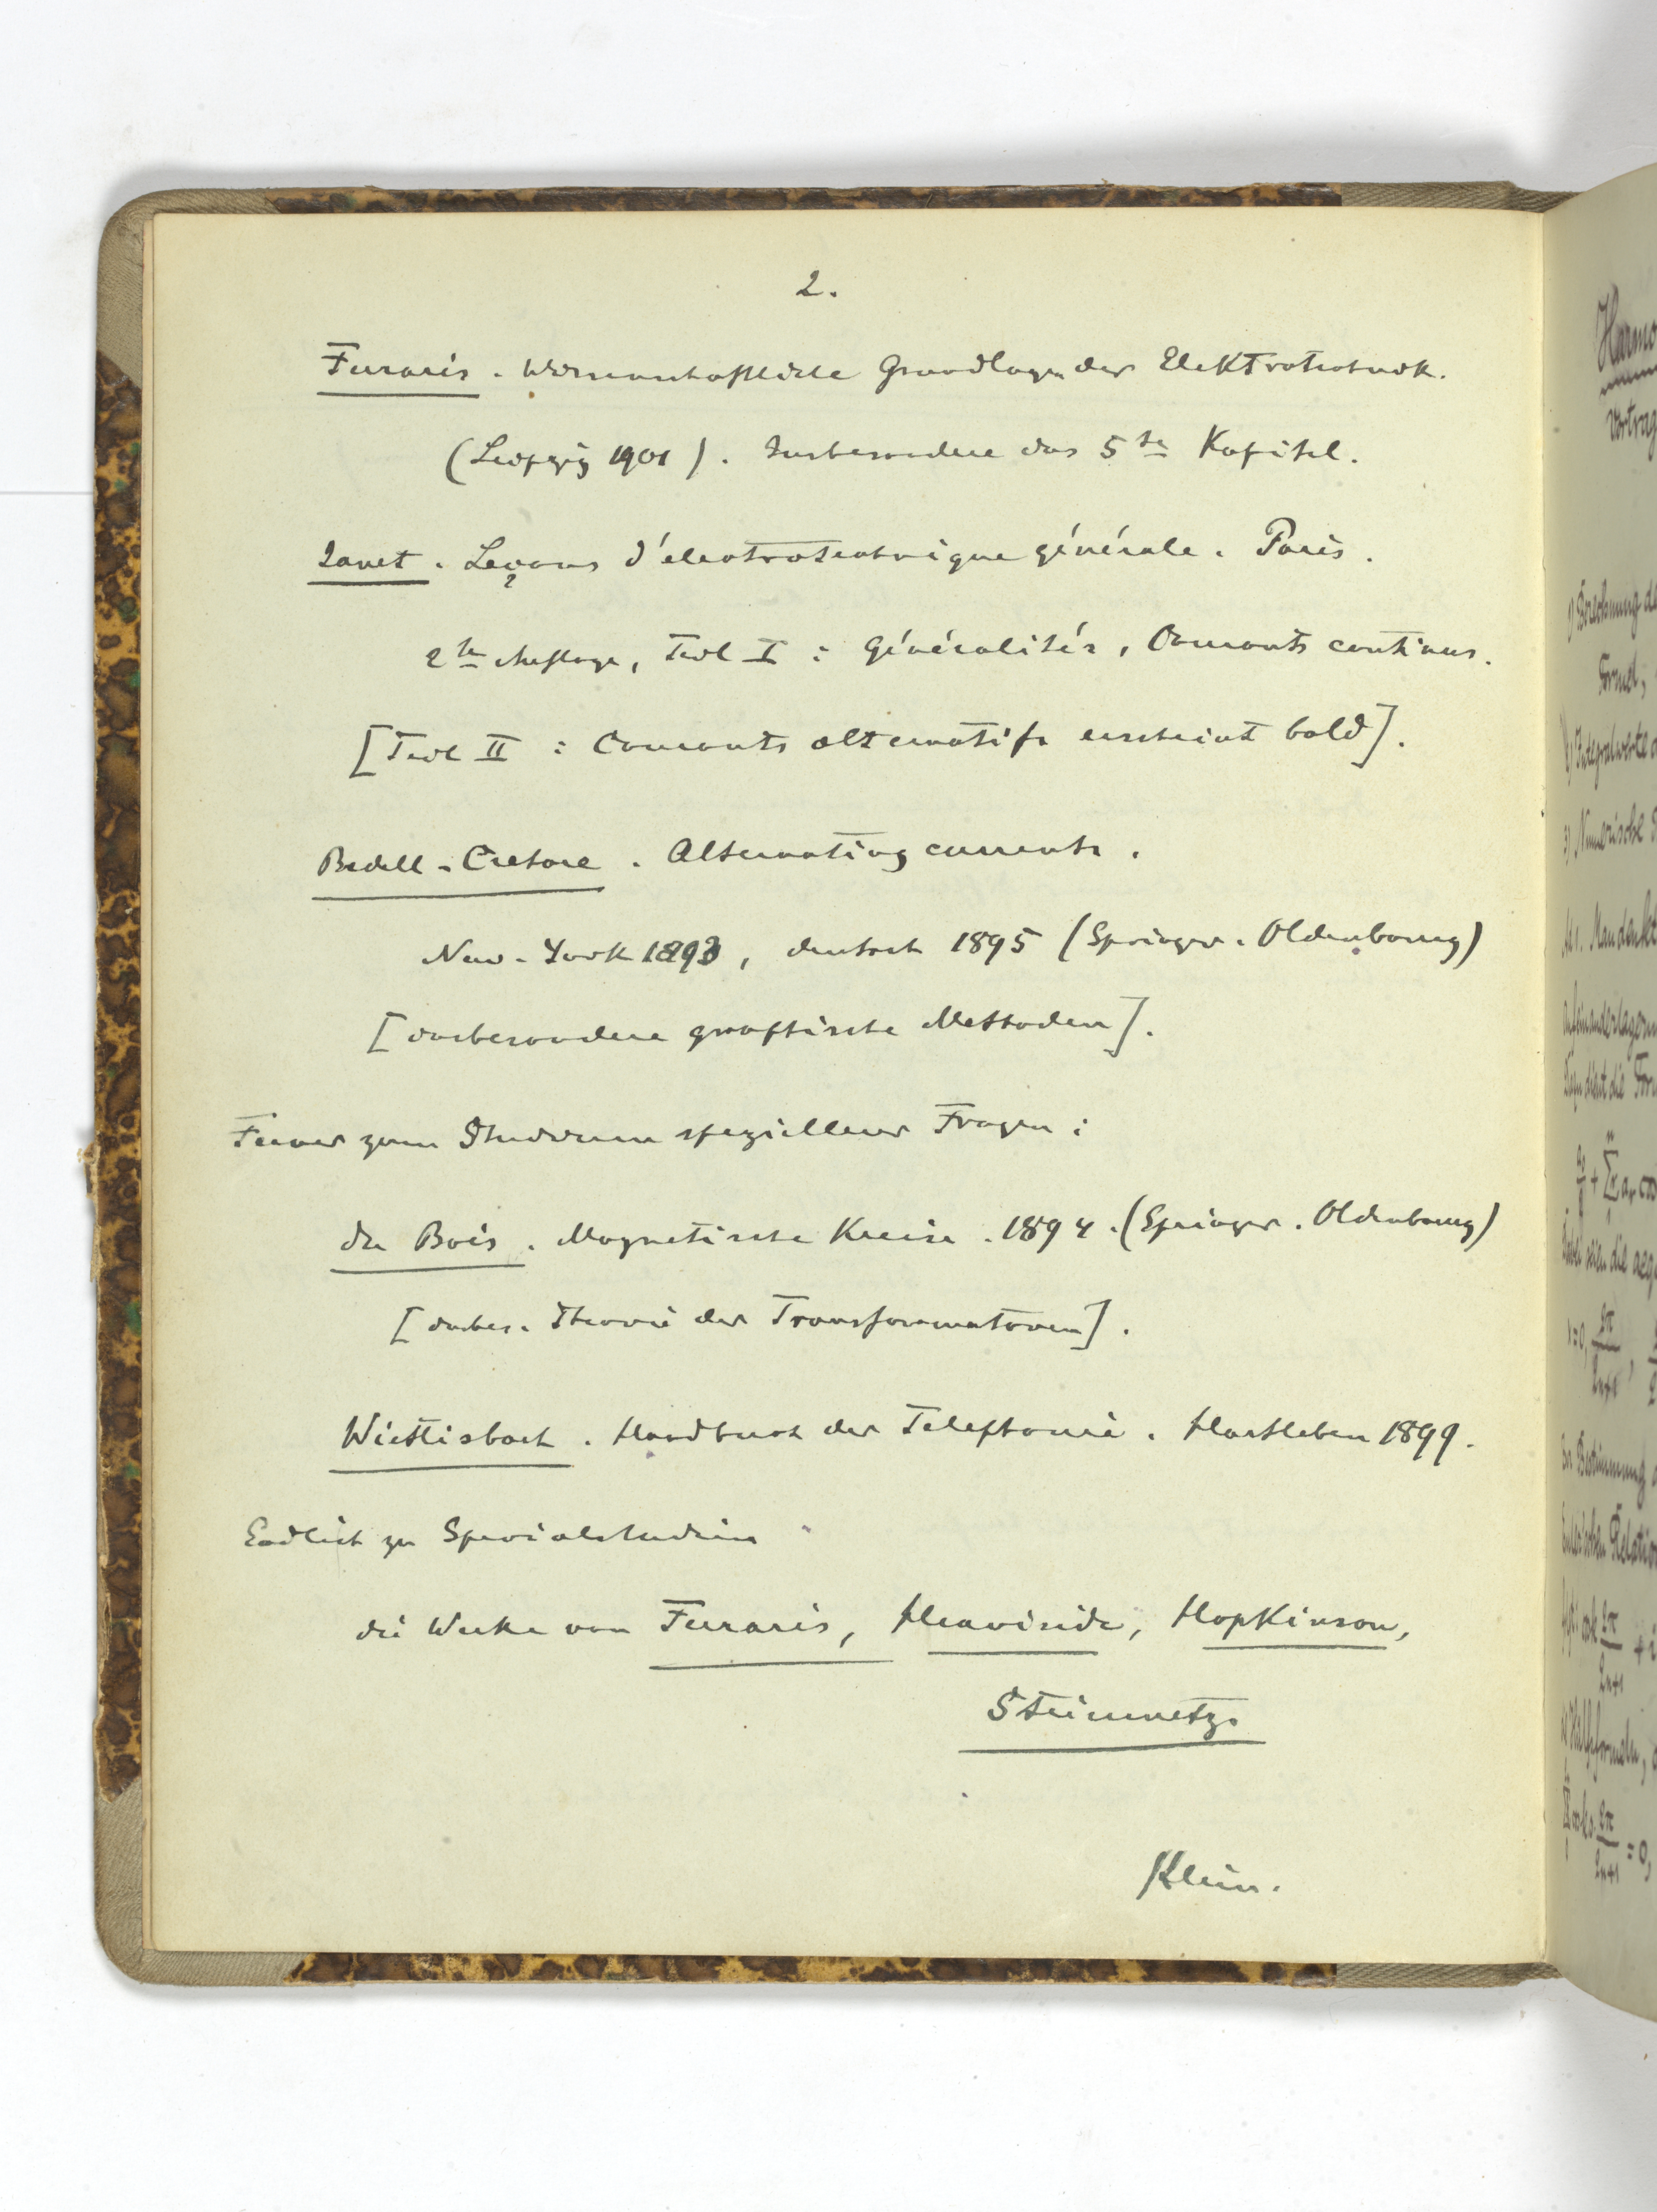 2.
Ferraris. Wissenschaftliche Grundlagen der Elektrotechnik.
(Leipzig 1901). Insbesondere das 5te Kapitel.
Janet. Leçons d'électrotechnique générale. Paris.
2te Auflage, Teil I: Généralités, Courants continus.
[Teil II: Courants alternatifs erscheint bald].
Bedell-Crehore. Alternating currents.
New-York 1893, deutsch 1895 (Springer-Oldenbourg)
[insbesondere graphische Methoden].
Ferner zum Studium spezieller Fragen:
du Bois. Magnetische Kreise. 1894. (Springer-Oldenbourg)
[insbes. Theorie der Transformatoren].
Wietlisbach. Handbuch der Telephonie. Hartleben 1899.
Endlich zu Specialstudien
die Werke von Ferraris, Heaviside, Hopkinson,
Steinmetz.
Klein.
Harmo
Vortrag
1) Berechnung de
Formel,
2) Integralwerte
3) Numerische